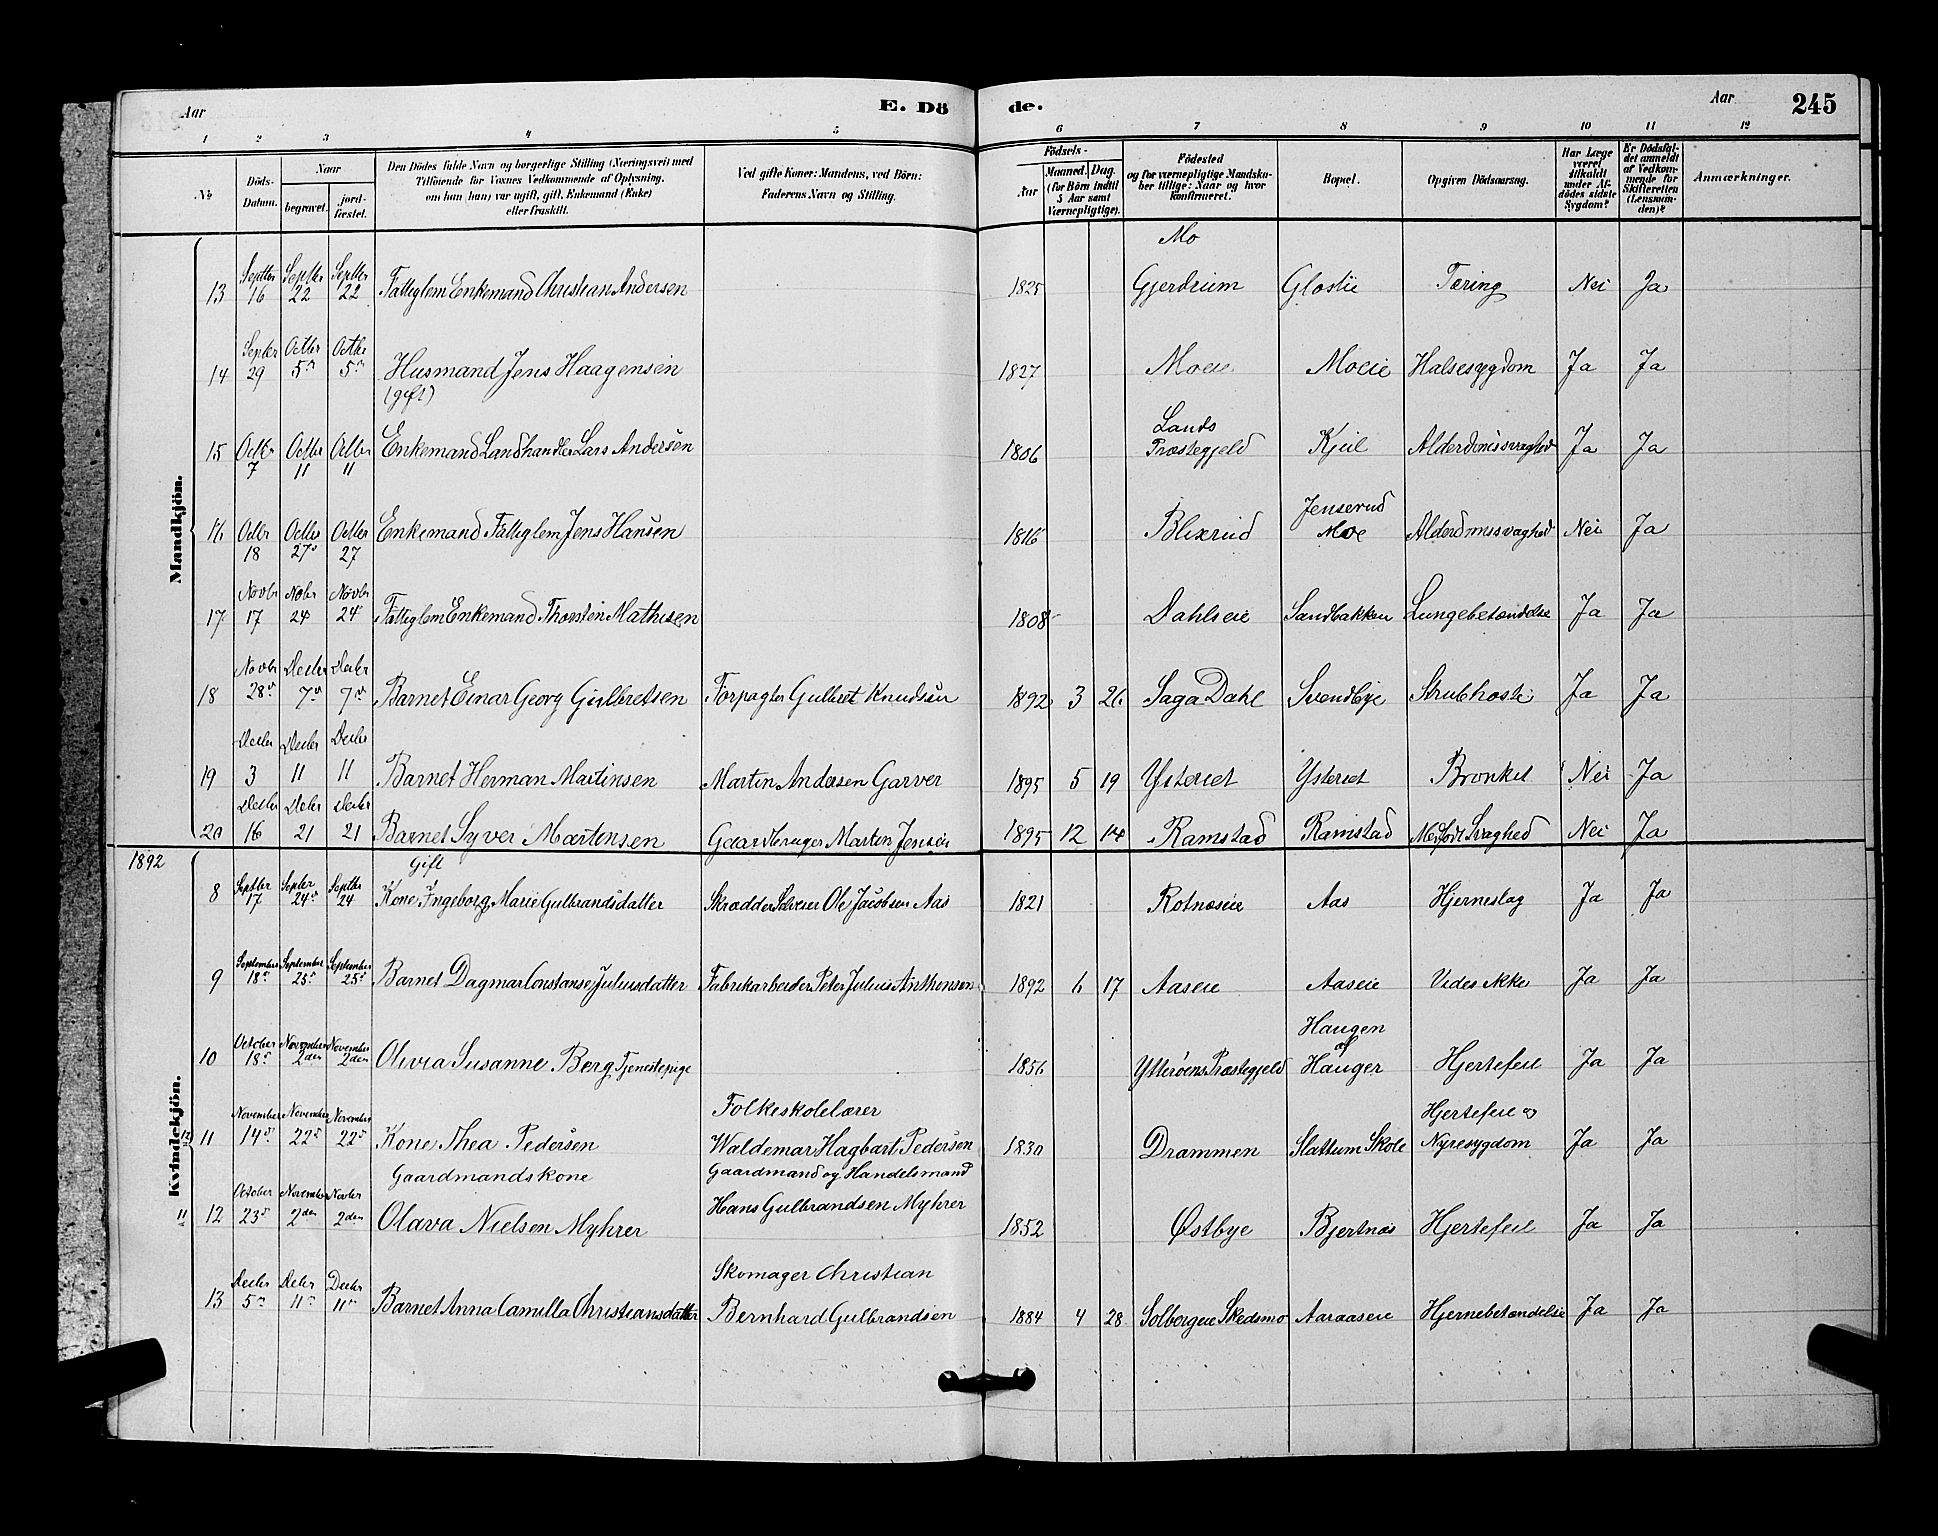 Aar E. Dö de. Aar 245
1 2 3 4 5 6 7 8 9 10 11 12
No
Döds-Datum.
Naar
begravet.
jord-fæstet.
Den Dödes fulde Navn og borgerlige Stilling (Næringsvei) med
Tilföiende for Voxnes Vedkommende af Oplysning,
om han (hun) var ugift, gift, Enkemand (Enke)
eller fraskilt.
Ved gifte Koner: Mandens, ved Börn:
Faderens Navn og Stilling.
Födsels-
Aar
Maaned. Dag.
(for Börn indtil
5 Aar samt
Værnepligtige).
Födested
og for værnepligtige Mandsku-
ber tillige: Naar og hvor
konfirmeret.
Bopæl.
Opgiven Dödsaarsag.
Har Læge
været
tilkaldt
under Af-
dödes sidste
Sygdom?
Er Dödsfal-
det anmeldt
af Vedkom-
mende for
Skifteretten
(Lensman-
den)?
Anmærkninger.
Mandkjön.
Mo
13 Septbr 16 Septbr 22 Septbr 22 Fattiglem Enkemand Christian Andersen 1825 Gjerdrum Glaslie Tæring Nei Ja
14 Septbr 29 Octbr 5 Octbr 5 Husmand Jens Haagensen 1827 Moeie Moeie Halsesygdom Ja Ja
(gift)
Lands
15 Octbr 7 Octbr 11 Octbr 11 Enkemand Landhandler Lars Andersen 1806 Præstegjeld Kjul Alderdomssvaghed Ja Ja
Jenserud
16 Octbr 18 Octbr 27 Octbr 27 Enkemand Fattiglem Jens Hansen 1816 Blixrud Moe Alderdomssvaghed Nei Ja
17 Novbr 17 Novbr 24 Novbr 24 Fattiglem Enkemand Thorsten Mathisen 1808 Dahlseie Sandbakken Lungebetændelse Ja Ja
18 Novbr 28 Decbr 7 Decbr 7 Barnet Einar Georg Gulbretsen Forpagter Gulbret Knudsen 1892 3 26 Saga Dahl Svendbye Strubhoste Ja Ja
19 Decbr 3 Decbr 11 Decbr 11 Barnet Herman Martinsen Martin Andersen Garver 1895 5 19 Ysteriet Ysteriet Bronkit Nei Ja
20 Decbr 16 Decbr 21 Decbr 21 Barnet Syver Martinsen Gaardbruger Martin Jensen 1895 12 14 Ramstad Ramstad Medfødt Svaghed Nei Ja
1892
Kvindekjön.
Gift
8 Septbr 17 Septbr 24 Septbr 24 Kone Ingeborg Marie Gulbrandsdatter Skrædder Selveier Ole Jacobsen Aas 1821 Rotnæseie Aas Hjerneslag Ja Ja
9 September 18 September 25 September 25 Barnet Dagmar Constanse Juliusdatter Fabrikarbeider Peter Julius Anthonsen 1892 6 17 Aaseie Aaseie Vides ikke Ja Ja
Haugen
af
10 October 18 November 2den November 2den Olivia Susanne Berg Tjenestepige 1856 Ytterøens Præstegjeld Hauger Hjertefeil Ja Ja
Folkeskolelærer Hjertefeil og
12 11 November 14 November 22 November 22 Kone Thea Pedersen Waldemar Hagbart Pedersen 1830 Drammen Slattum Skole Nyresygdom Ja Ja
Gaardmandskone Gaardmand og Handelsmand
11 12 October 23 November 2den Novbr 2den Olava Nielsen Myhrer Hans Gulbrandsen Myhrer 1852 Østbye Bjertnæs Hjertefeil Ja Ja
Skomager Christian
13 Decbr 5 Decbr 11 Decbr 11 Barnet Anna Camilla Christiansdatter Bernhard Gulbrandsen 1884 4 28 Solbergeie Skedsmo Aaraaseie Hjernebetændelse Ja Ja